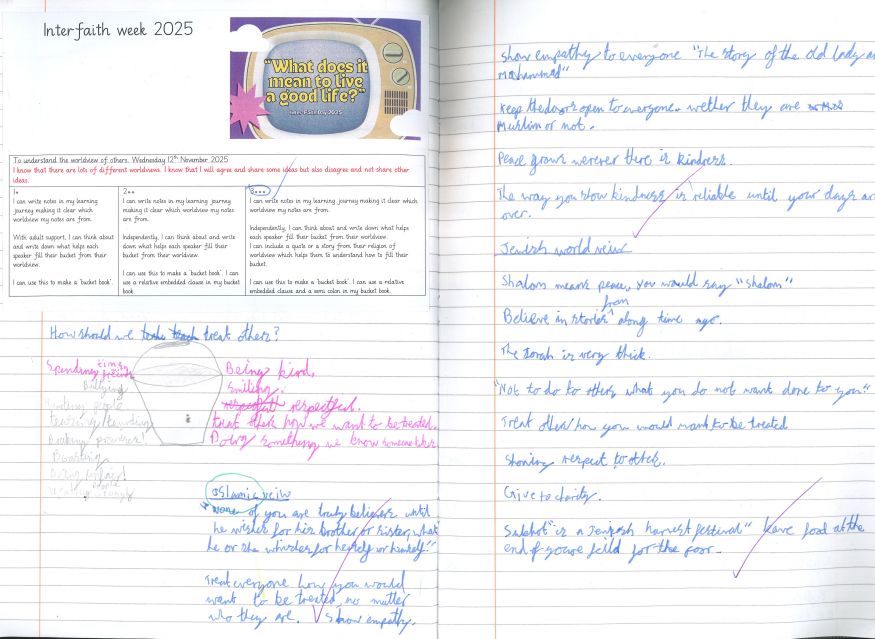 Interfaith week 2025
"What does it
mean to live
a good life?"
To understand the worldview of others. Wednesday 12th November 2025
I know that there are lots of different worldviews. I know that I will agree and share some ideas but also disagree and not share other
ideas.
1*
I can write notes in my learning
journey making it clear which
worldview my notes are from.
With adult support, I can think about
and write down what helps each
speaker fill their bucket from their
worldview.
I can use this to make a 'bucket book'.
2**
I can write notes in my learning journey
making it clear which worldview my notes
are from.
Independently, I can think about and write
down what helps each speaker fill their
bucket from their worldview.
I can use this to make a 'bucket book'. I can
use a relative embedded clause in my bucket
book.
3***
I can write notes in my learning journey making it clear which
worldview my notes are from.
Independently, I can think about and write down what helps
each speaker fill their bucket from their worldview.
I can include a quote or a story from their religion of
worldview which helps them to understand how to fill their
bucket.
I can use this to make a 'bucket book'. I can use a relative
embedded clause and a semi colon in my bucket book.
How should we treat others?
Spending time
Bullying
Breaking promises!
Boasting
Being unfair!
Being kind,
Smiling,
respectful.
treat others how we want to be treated.
Doing something we know someone likes
Islamic veiw
"None of you are truly believers until
he wishes for his brother or sister, what
he or she whishes for herself or himself."
Treat everyone how you would
want to be treated, no matter
who they are. Show empathy.
Show empathy to everyone "The story of the old lady and
Mohammad"
Keep the doors open to everyone. wether they are
Muslim or not.
Peace grows werever there is kindness.
The way you show kindness is reliable until your days are
over.
Jewish world veiw
Shalom means peace, you would say "shalom"
Believe in stories from along time ago.
The Torah is very thick.
"Not to do to others what you do not want done to you"
Treat others how you would want to be treated
Showing respect to others.
Give to charity.
Sukkot "is a Jewish harvest festival" leave food at the
end of your feild for the poor.